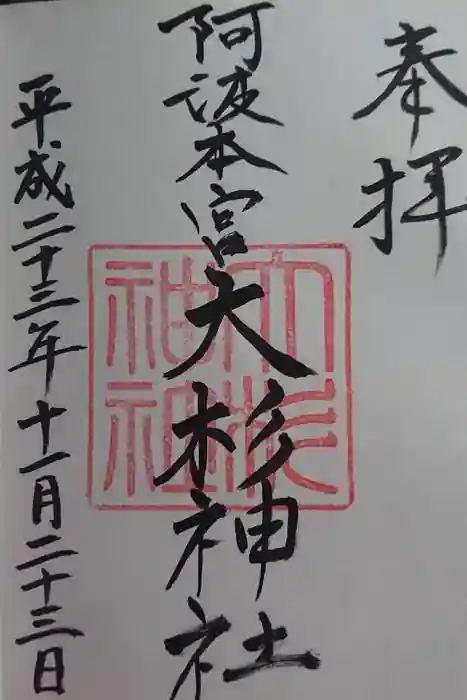 奉拝
阿波本宮大杉神社
大杉神社
平成二十三年十一月二十三日